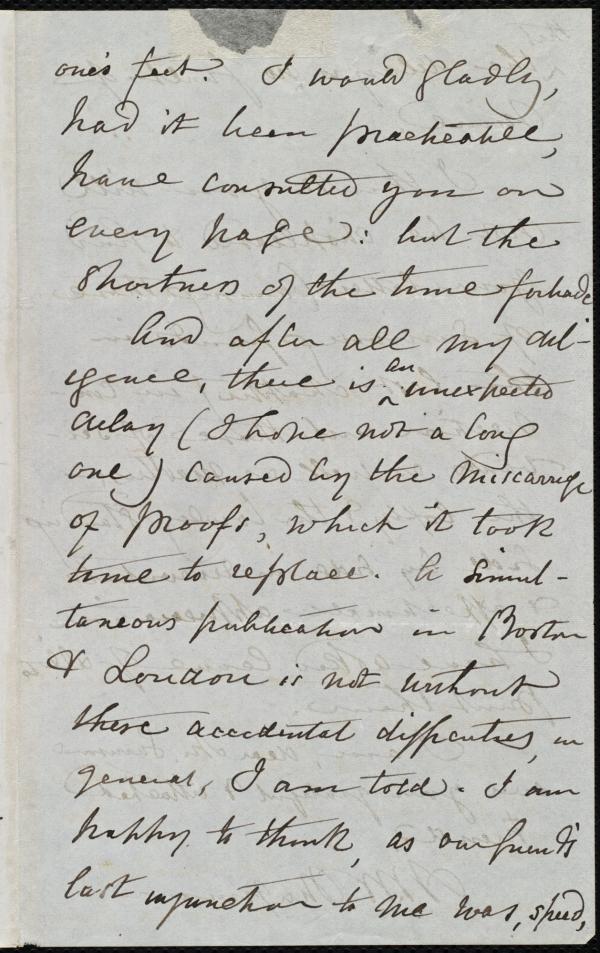 one's feet. I would gladly,
had it been practicable,
have consulted you on
every page: but the
shortness of the time forbade
And after all my dil-
igence, there is an unexpected
delay (I hope not a long
one) caused by the miscarriage
of proofs, which it took
time to replace. A simul-
taneous publication in Boston
& London is not without
these accidental difficulties, in
general, I am told. I am
happy to think, as our friend's
last injunction to me was, speed,